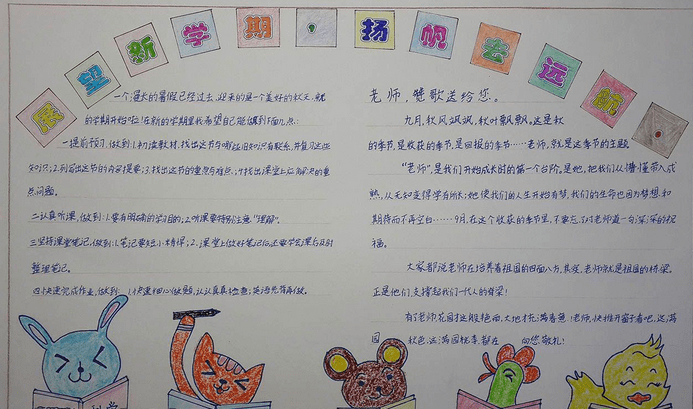 展望新学期·扬帆去远航。
一个漫长的暑假已经过去,迎来的是一个美好的秋天,新
的学期开始啦!在新的学期里我希望自己能做到下面几点:
一提前预习,做到:1.初读教材,找出这节与哪些旧知识有联系,并复习这些
知识;2.列写出这节的内容提要;3.找出这节的重点与难点;4.找出课堂上应解决的重
点问题。
二认真听课,做到:1.要有明确的学习目的;2.听课要特别注意"理解"。
三坚持课堂笔记,做到:1.笔记要短小精悍;2.课堂上做好笔记后,还要学会课后及时
整理笔记。
四快速完成作业,做到:1.快速细心做题,认认真真检查;英语先背再做。
老师,赞歌送给您。
九月,秋风飒飒,秋叶飘飘。这是秋
的季节,是收获的季节,是回报的季节……老师,就是这季节的主题
"老师",是我们开始成长时的第一个台阶,是她,把我们从懵懂带入成
熟,从无知变得学有所长;她使我们的人生开始有梦,我们的生命也因为梦想和
期待而不再空白……9月,在这个收获的季节里,不要忘了对老师道一句深深的祝
福。
大家都说老师在培养着祖国的四面八方,其实,老师就是祖国的桥梁。
正是他们,支撑起我们一代人的脊梁!
有了老师,花园才这般艳丽,大地才充满春意!老师,快推开窗子看吧,这满
园秋色,这满园桃李,都在向您敬礼!
科学